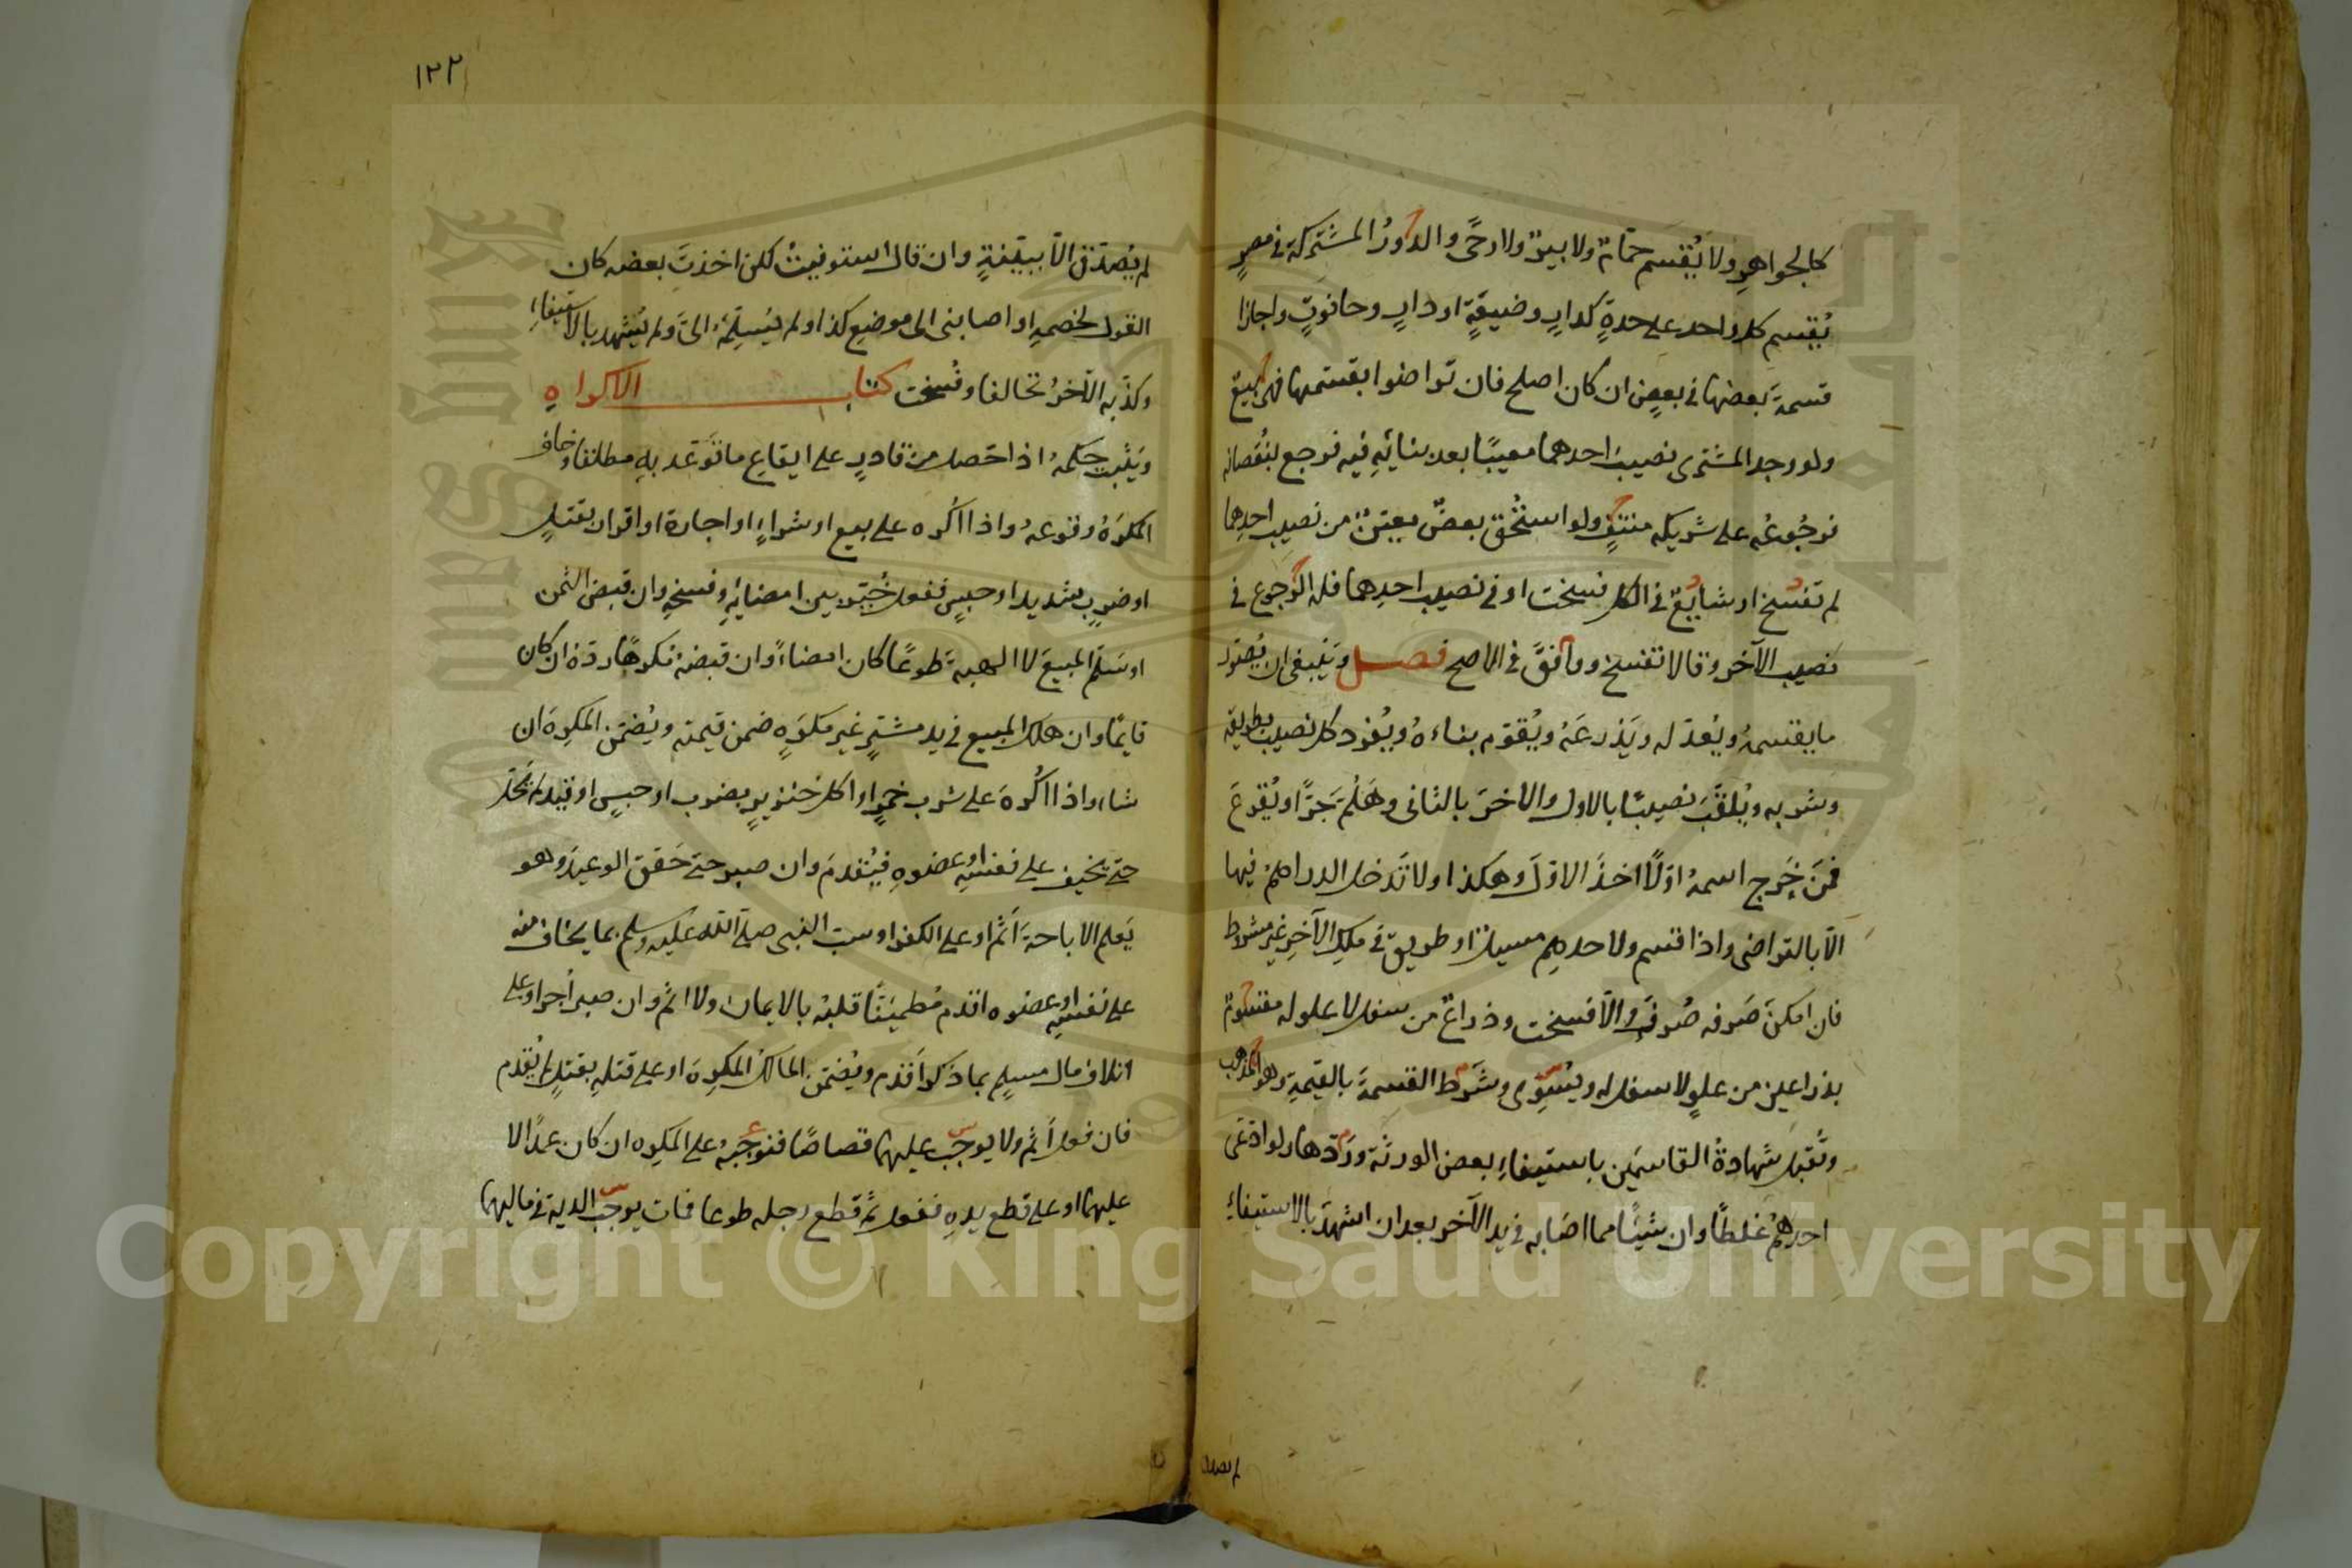 كالجواهرِ ولا يُقسَم حمّامٌ ولا بيرٌ ولا رحًى والدُورُ المشتركة في مصرٍ
يُقسم كل واحد على حدةٍ كدارٍ وضيعةٍ او دارٍ وحانوتٍ واجازا
قسمةَ بعضها في بعضٍ ان كان اصلح فان تراضوا بقسمها فهى بيعٌ
ولو وجد المشترى نصيبَ احدهما معيبًا بعد بنائِهِ فيه فرجع بنُقصانه
فرجُوعُه على شريكه منتفٍ ولو استُحق بعضٌ معيّنٌ من نصيب احدِهما
لم تفسخ او شايعٌ في الكل فسخت او في نصيب احدِهما فله الرجوع في
نصيب الآخر وقالا تفسخ ووافقَ في الاصح فصل ويَنبغى ان يُصوّر
ما يقسمهُ ويُعدّله ويَذرعَهُ ويُقوّم بناءهُ ويُفرد كل نصيب بطريقه
وشربه ويُلقّبَ نصيبًا بالاول والاخرَ بالثانى وهَلُمّ جَرًّا ويُقرِعَ
فمَن خَرج اسمهُ اوّلًا اخذَ الاوّلَ وهكذا ولا تَدخل الدراهمُ فيها
الّا بالتراضى واذا قسم ولاحدهم مسيل او طريق في ملك الآخرِ غير مشروط
فان امكنَ صَرفه صُرفَ والّا فسخت وذراعٌ من سفل لا علو له مقسومٌ
بذراعين من علوٍ لا سفل له ويُسَوّى وشَرَط القسمةَ بالقيمةِ وهو المذهب
وتُقبل شهادةُ القاسمَين باستيفاءِ بعض الورثة وردّها ولو ادّعَى
احدهُم غلطًا وان شيئًا مما اصَابه في يد الآخر بعد ان اشهدَ بالاستيفاءِ
لم يصدق
١٢٢
لم يُصَدّق الّا ببيّنةٍ وان قال استوفيتُ لكن اخذتَ بعضه كان
القول لخصمهِ او اصابنى الى موضع كذا ولم يُسلّمهُ الىّ ولم يُشهد بالاستيفاءِ
وكذّبه الآخرُ تحالفا وفُسخت كتاب الاكراهِ
ويَثبت حكمهُ اذا حَصل من قادرٍ على ايقاع ما تَوعّد به مطلقا وخاف
المكرَهُ وقوعهُ واذا اُكره على بيع او شراءٍ او اجارة او اقرار بقتلٍ
او ضربٍ شديد او حبسٍ ففعل خُيّر بين امضائِهِ وفسخهِ وان قبض الثمن
او سَلّم المبيعَ لا الهبةَ طوعًا كان امضاءً وان قبضهُ مُكرهًا ردّهُ ان كان
قايمًا وان هلك المبيع في يد مشترٍ غير مكرَهٍ ضمن قيمته ويُضمّن المكرِهَ ان
شاء واذا اُكرهَ على شرب خمرٍ او اكل خنزيرٍ بضرب او حبسٍ او قيد لم يحَلّ
حتى يخيف على نفسه او عضوهِ فيُقدم وان صبر حتى حَقق الوعيدَ وهو
يَعلم الاباحةَ اَثم او على الكفر او سب النبى صلى الله عليه وسلم بما يخاف منه
على نفسه او عضوه اقدم مُطمئنًا قلبهُ بالايمان ولا اثم وان صبر اُجر او على
اتلاف مال مسلمٍ بما ذكر اقدم ويُضمّن المالكُ المكرِهَ او على قتلهِ بقتلٍ لم يُقدم
فان فعل اَثم ولا يوجب عليهما قصاصًا فنوجبُهُ على المكرِه ان كان عمدًا لا
عليهما او على قطع يدهِ ففعل ثُم قطع رجله طوعا فمات يوجب الدية في ماليهما
Copyright © King Saud University